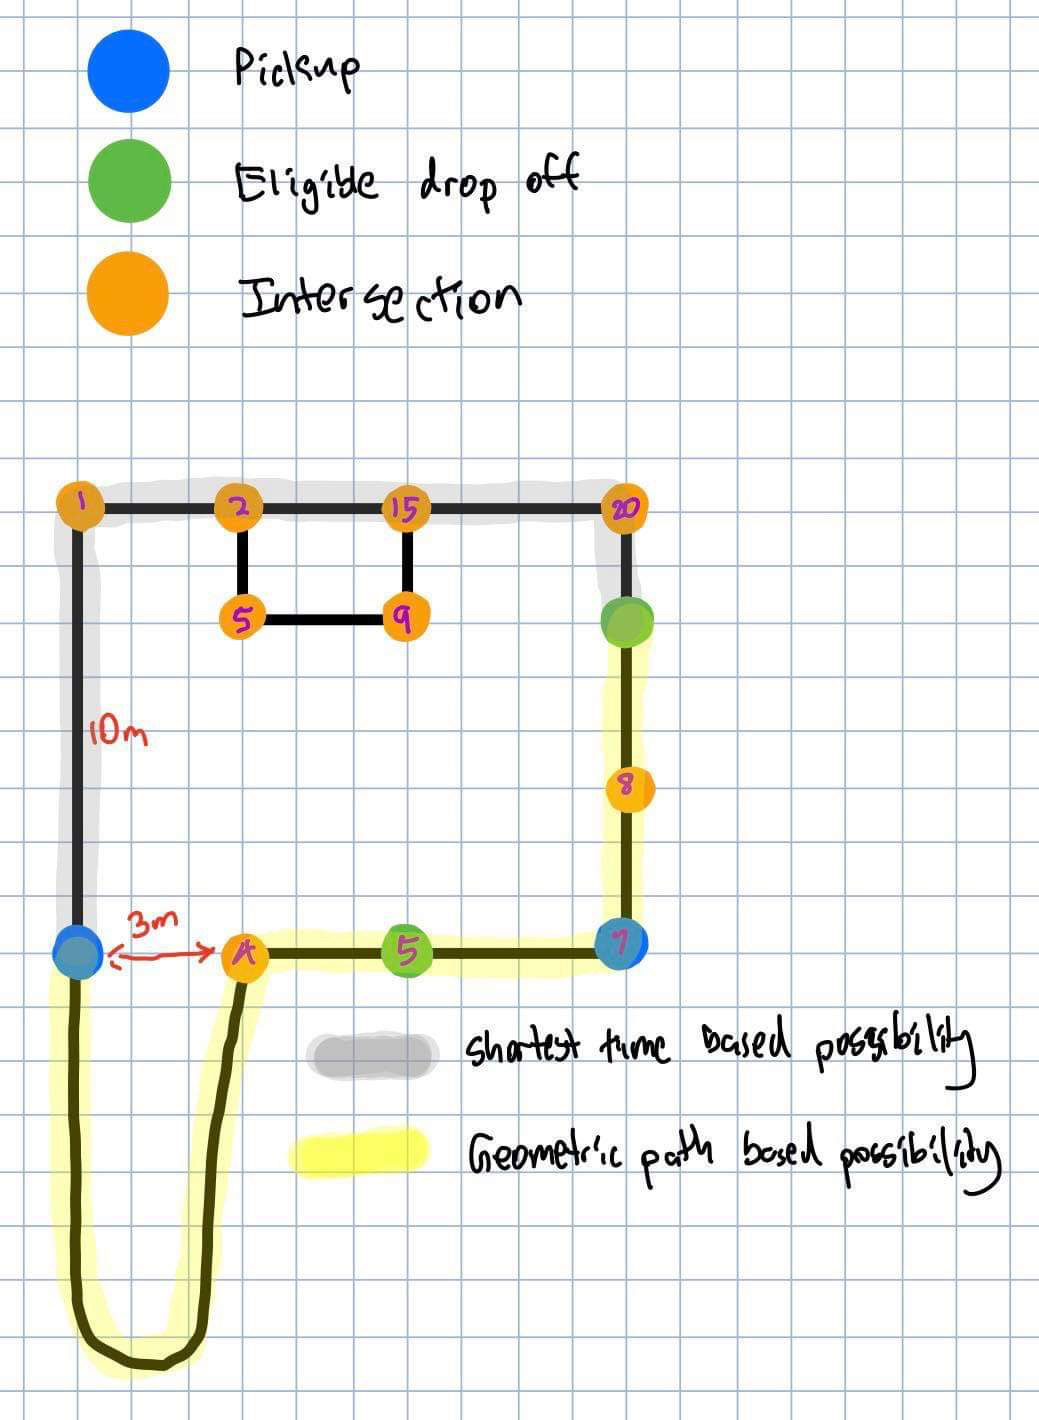 Pickup
Eligible drop off
Intersection
1 2 15 20
5 9
10m
8
3m
4 5 7
shortest time based possibility
Geometric path based possibility